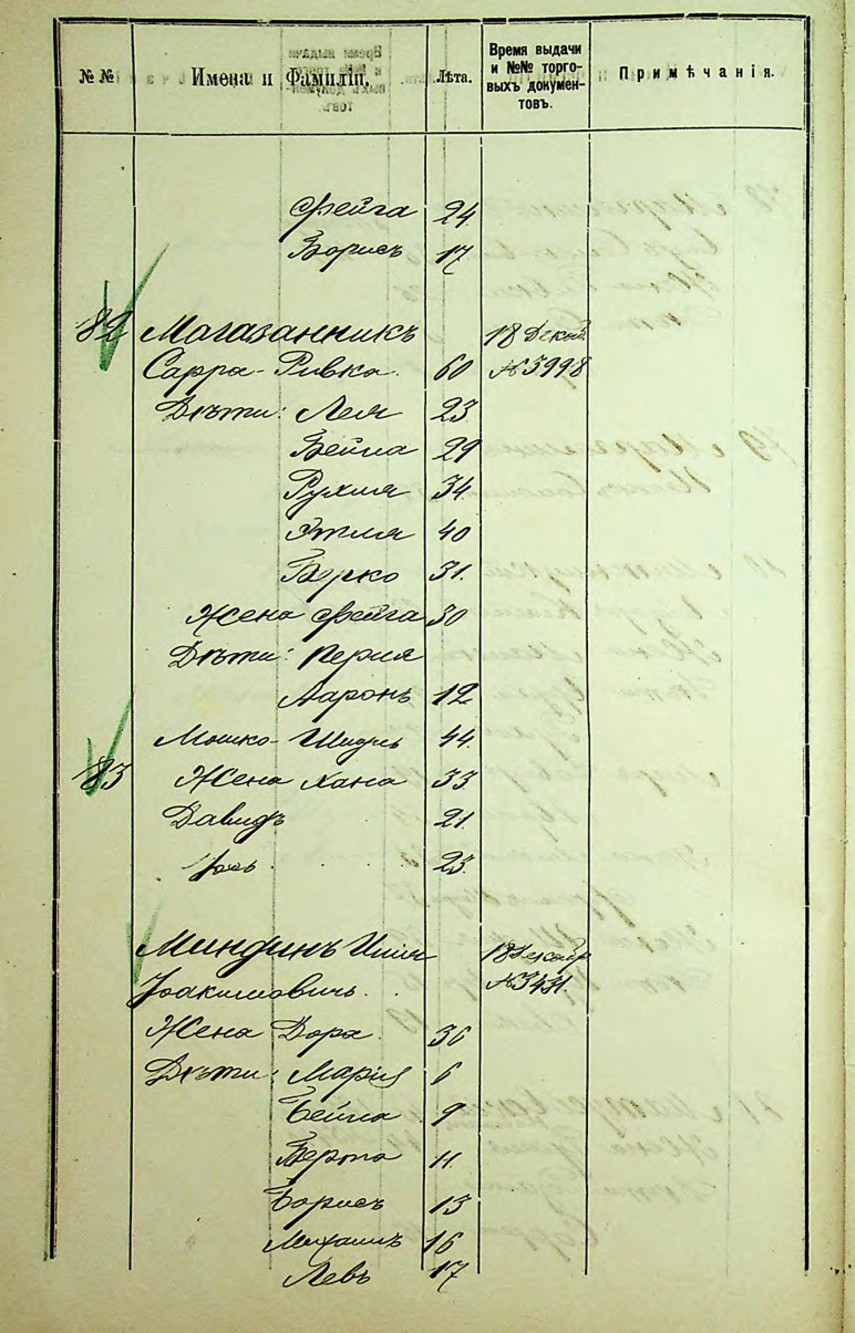 №№ Имена и Фамиліи. Лѣта. Время выдачи и №№ торго-выхъ докумен-товъ. Примѣчанія.
Фейга 24
Борисъ 17
82 Магазанникъ 18 Декаб.
Сарра-Ривка. 60 №3998
Дѣти: Лея 23
Бейла 29
Рухля 34
Этля 40
Берко 31.
Жена Фейга 30
Дѣти: Перля
Ааронъ 12
Мошко- 44
83 Жена Хана 33
Давидъ 21
23
Миндинъ Илія 18 Декабр
Іоакимовичъ.
Жена Дора 36
Дѣти: Марія 6
Бейла 9
Берта 11
Борисъ 13
Михаилъ 16
Левъ 17